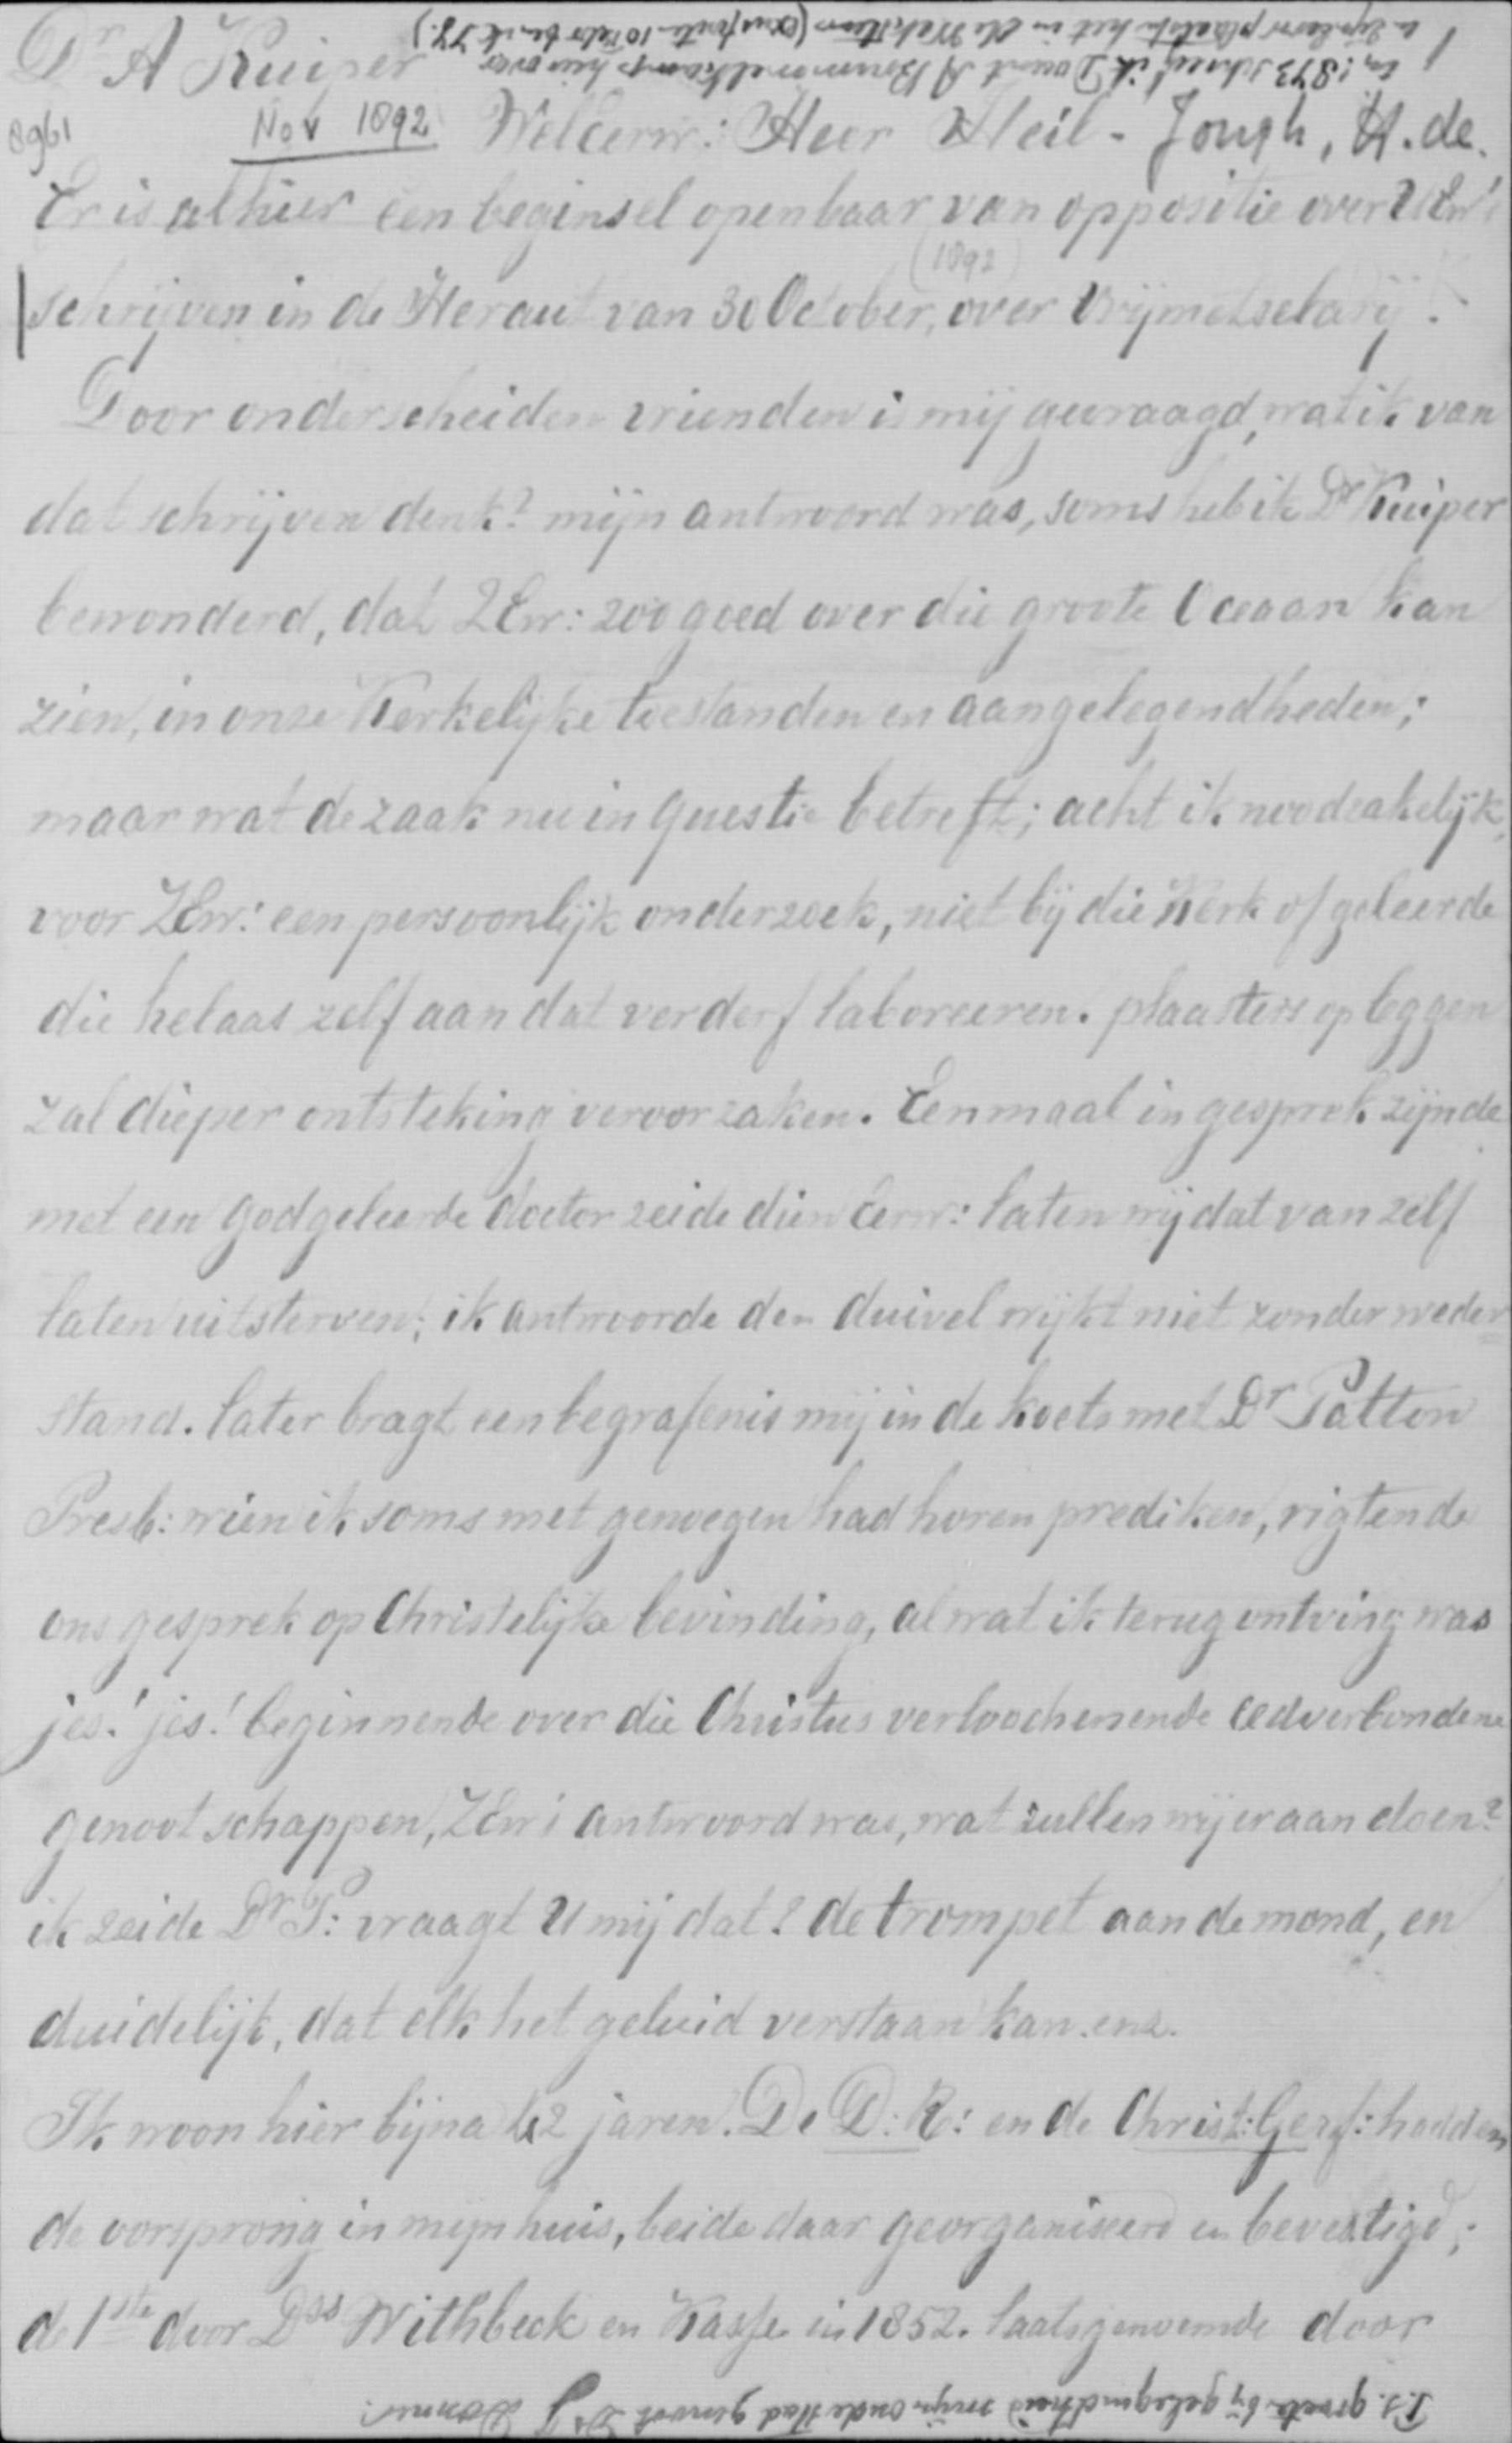 Dr A Kuiper
in 1873 schreef ik Docent A Brummelkamp hierover
8961
Nov 1892
Weleerw: Heer Heil - Jongh, H. de.
Er is alhier een beginsel openbaar van oppositie over UEw's
(1892)
schrijven in de Heraut van 30 October, over Vrijmetselarij.
Door onderscheiden vrienden is mij gevraagd, wat ik van
dat schrijven denk? mijn antwoord was, soms heb ik Dr Kuiper
bewonderd, dat ZEw: zoo goed over die groote Oceaan kan
zien, in onze Kerkelijke toestanden en aangelegendheden;
maar wat de zaak nu in Questie betreft; acht ik noodzakelijk,
voor ZEw: een persoonlijk onderzoek, niet bij die Kerk of geleerde
die helaas zelf aan dat verderf laboreeren. plaasters op leggen
zal dieper ontsteking veroorzaken. Eenmaal in gesprek zijnde
met een Godgeleerde doctor zeide dien Eerw: laten wij dat van zelf
laten uitsterven; ik antwoorde den duivel wijkt niet zonder weder
stand. later bragt een begrafenis mij in de koets met Dr Patton
Presb: wien ik soms met genoegen had horen prediken, rigtende
ons gesprek op Christelijke bevinding, al wat ik terug ontving was
jes! jes! beginnende over die Christus verloochenende eedverbondene
genootschappen, ZEw's antwoord was, wat zullen wij eraan doen?
ik zeide Dr P: vraagt U mij dat? de trompet aan de mond, en
duidelijk, dat elk het geluid verstaan kan. enz.
Ik woon hier bijna 42 jaren. De D: R: en de Christ: Geref: hadden
de oorsprong in mijn huis, beide daar georganiseerd en bevestigd;
de 1ste door Dss Withbeck en Kasse in 1852. laatsgenoemde door
P.s. groete bij gelegendheid mijn oude stad genoot Dr Donner